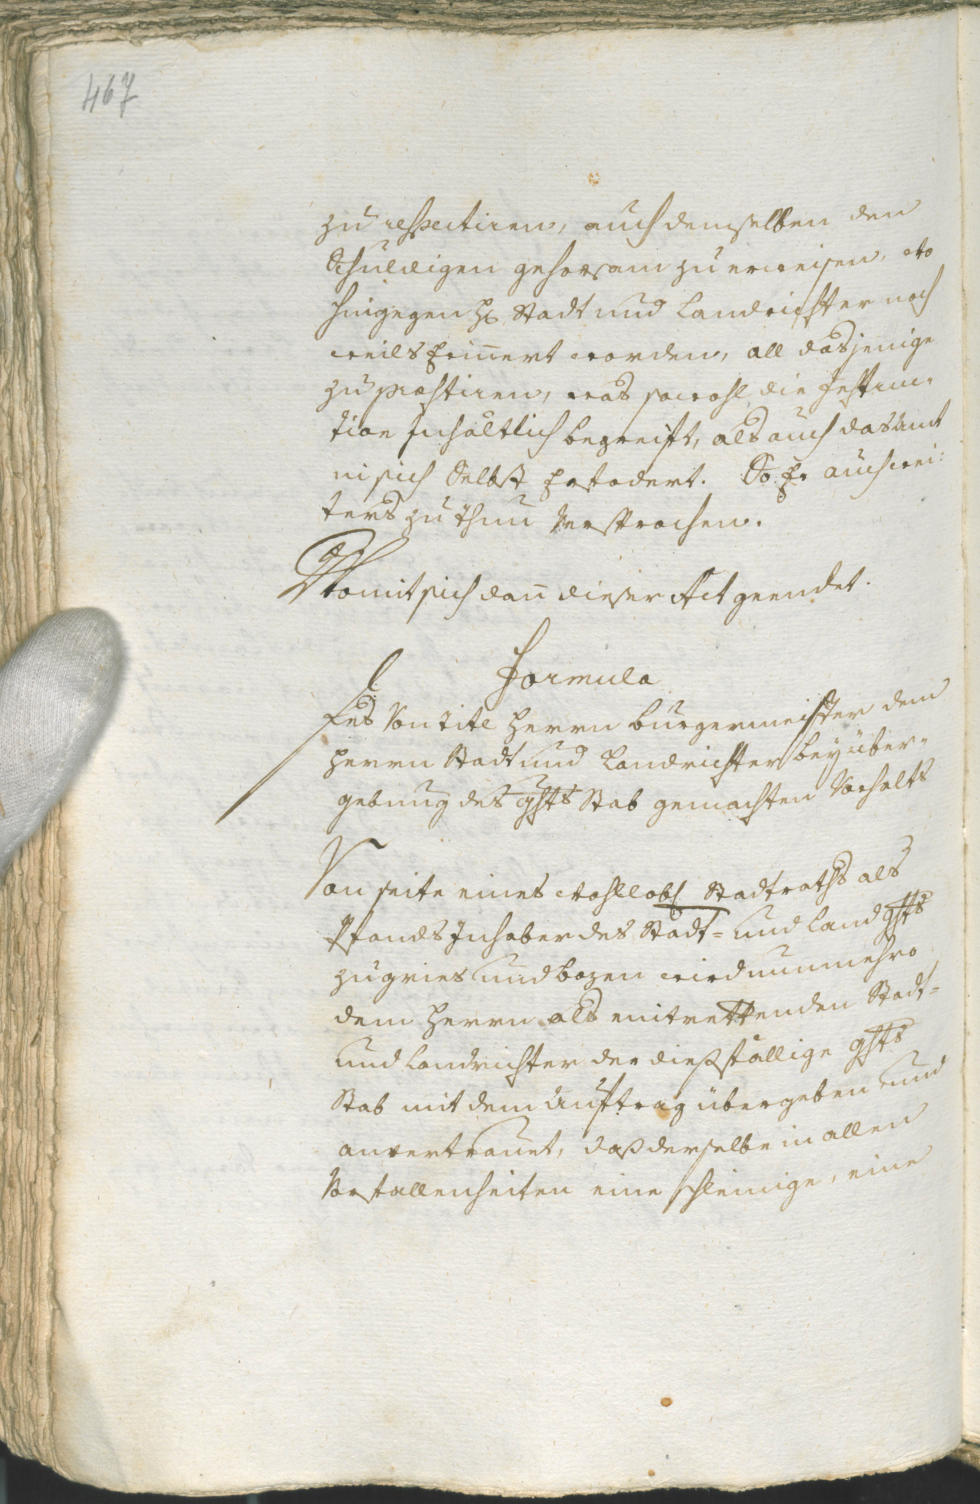 467
zu respectiren, auch demselben den
Schuldigen gehorsam zu erweisen, wo
hingegen H: Stadt und Landrichter noch
weils Erinnert worden, all dasjenige
zu præstiren, was sowohl die Instruc-
tion Inhältlich begreift, als auch das Amt
in sich Selbst Erfodert. So Er auch wei:
ters zu thun Versprochen.
Womit sich dann dieser Act geendet.
Formula
Des Von Titl Herrn Burgermeister dem
Herrn Stadt und Landrichter bey über-
gebung des ghts Stab gemachten Vorhalts
Von seite eines Wohllobl Stadtraths als
Pfands Inhaber des Stadt- und Land ghts
zu gries und bozen wird nunmehro
dem Herrn als eintrettenden Stadt-
und Landrichter der dießfällige ghts
Stab mit dem Auftrag übergeben und
anvertrauet, daß derselbe in allen
Vorfallenheiten eine schleinige, eine